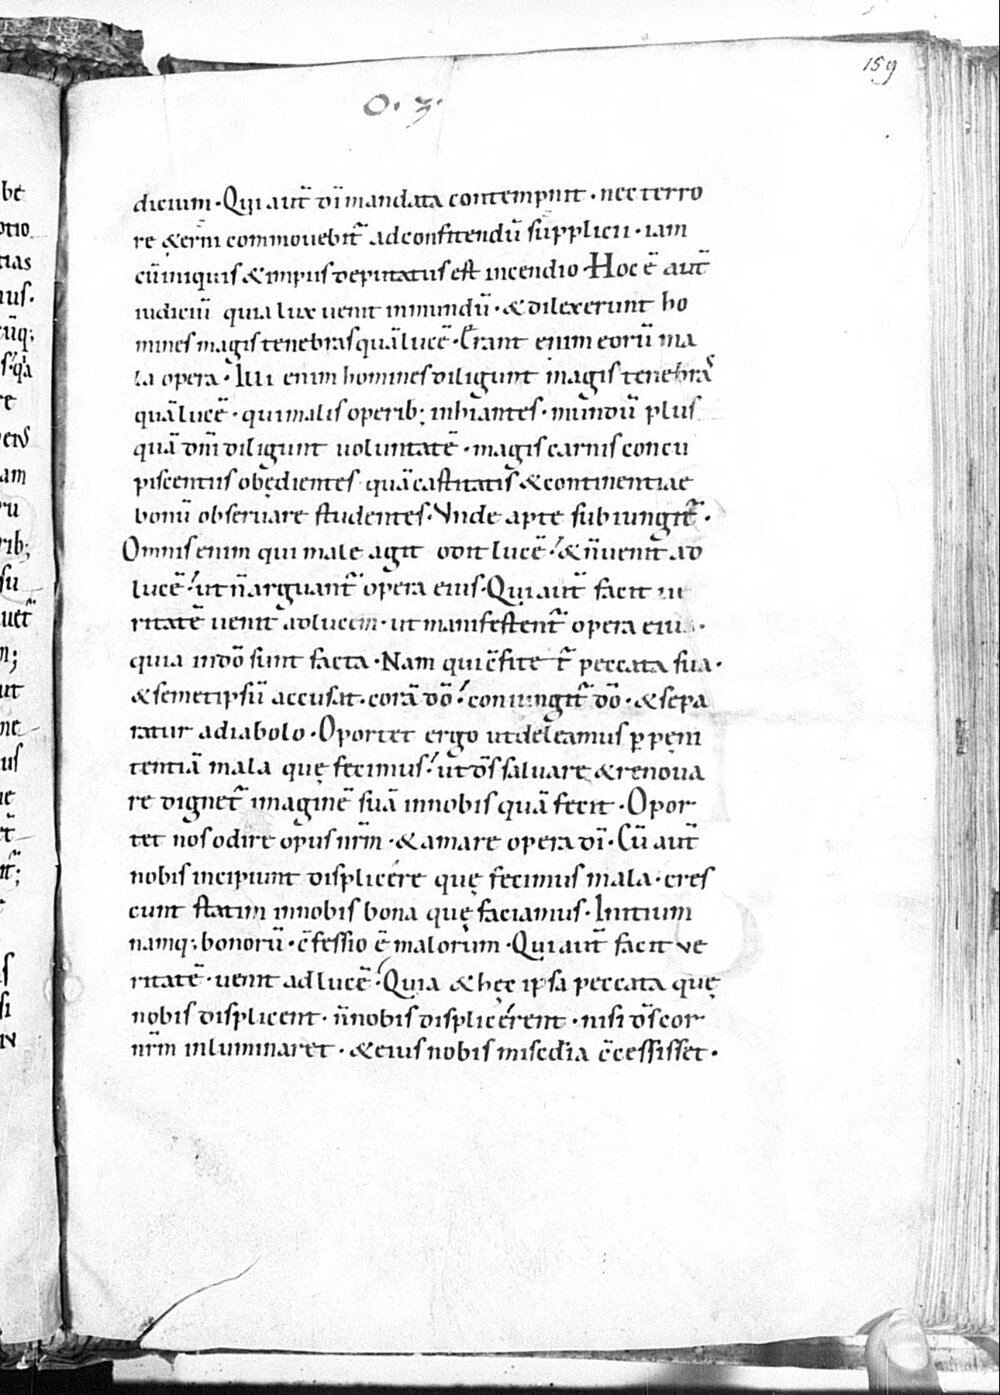 159
O. 3.
be
dicium · Qui aut̄ dı̄ mandata contempnit · nec terro
otio
re ęterni commouebit̄ ad confitendū supplicii · iam
tias
cū iniquis & impiis deputatus est incendio · Hoc ē aut̄
nus.
iudiciū quia lux uenit in mundū · & dilexerunt ho
mines magis tenebras quā lucē · Erant enim eorū ma
la opera · Illi enim homines diligunt magis tenebras
re
quā lucē · qui malis operib; inhiantes · mundū plus
quā dn̄i diligunt uoluntatē · magis carnis concu
am
piscentiis obędientes quā castitatis & continentiae
ru
bonū obseruare studentes · Vnde apte subiungit̄ ·
rib;
Omnis enim qui male agit odit lucē · & n̄ uenit ad
sū
lucē · ut n̄ arguant̄ opera eius · Qui aut̄ facit ue
uet̄
ritatē uenit ad lucem · ut manifestent̄ opera eius ·
n;
quia in dō sunt facta · Nam qui c̄fitet̄ peccata sua ·
ut
& semetipsū accusat · corā dō · coniungit̄ dō · & sepa
ne
ratur a diabolo · Oportet ergo ut deleamus p pęni
us
tentiā mala quę fecimus · ut ds̄ saluare & renoua
re dignet̄ imaginē suā in nobis quā fecit · Opor
tet nos odire opus nr̄m · & amare opera dı̄ · Cū aut̄
nobis incipiunt displicére quę fecimus mala · cres
cunt statim in nobis bona quę faciamus · Initium
namq; bonorū · c̄fessio ē malorum · Qui aut̄ facit ve
ritatē · uenit ad lucē · Quia & hęc ipsa peccata quę
si
nobis displicent · n̄ nobis displicérent · nisi ds̄ cor
nr̄m inluminaret · & eius nobis misc̄dia c̄cessisset ·